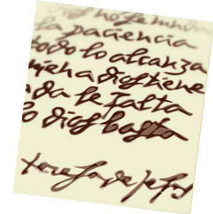 la paciencia
todo lo alcanza
quien a dios tiene
nada le falta
solo dios basta
teresa de jesus